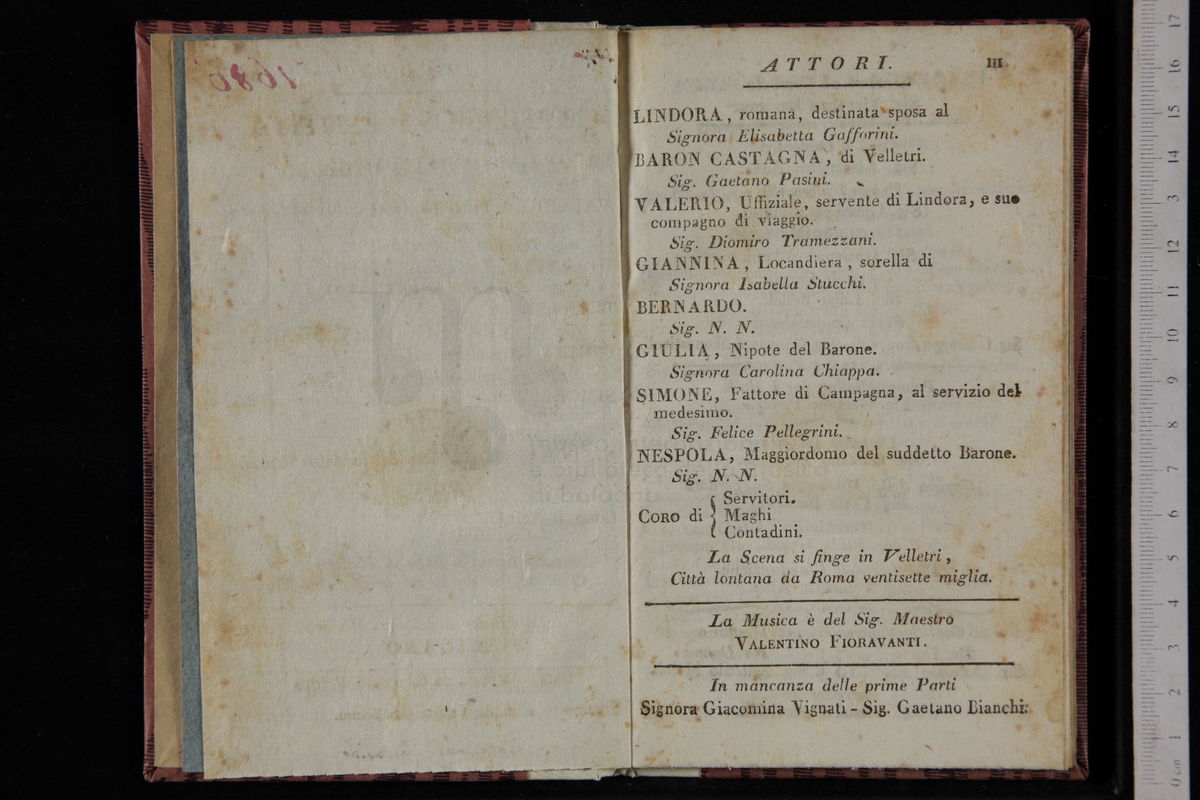 1686
ATTORI. III.
LINDORA, romana, destinata sposa al
Signora Elisabetta Gafforini.
BARON CASTAGNA, di Velletri.
Sig. Gaetano Pasini.
VALERIO, Uffiziale, servente di Lindora, e suo
compagno di viaggio.
Sig. Diomiro Tramezzani.
GIANNINA, Locandiera, sorella di
Signora Isabella Stucchi.
BERNARDO.
Sig. N. N.
GIULIA, Nipote del Barone.
Signora Carolina Chiappa.
SIMONE, Fattore di Campagna, al servizio del
medesimo.
Sig. Felice Pellegrini.
NESPOLA, Maggiordomo del suddetto Barone.
Sig. N. N.
Servitori.
CORO di { Maghi
Contadini.
La Scena si finge in Velletri,
Città lontana da Roma ventisette miglia.
La Musica è del Sig. Maestro
VALENTINO FIORAVANTI.
In mancanza delle prime Parti
Signora Giacomina Vignati - Sig. Gaetano Bianchi.
17
16
15
14
13
12
11
10
9
8
7
6
5
4
3
2
1
0 cm